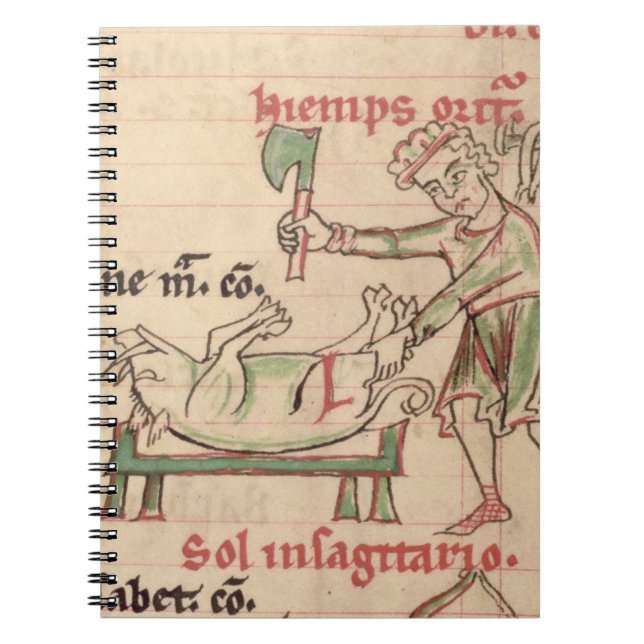 hiemps orit̃.
ne m̃. cõ.
L
Sol insagittario.
abet. cõ.